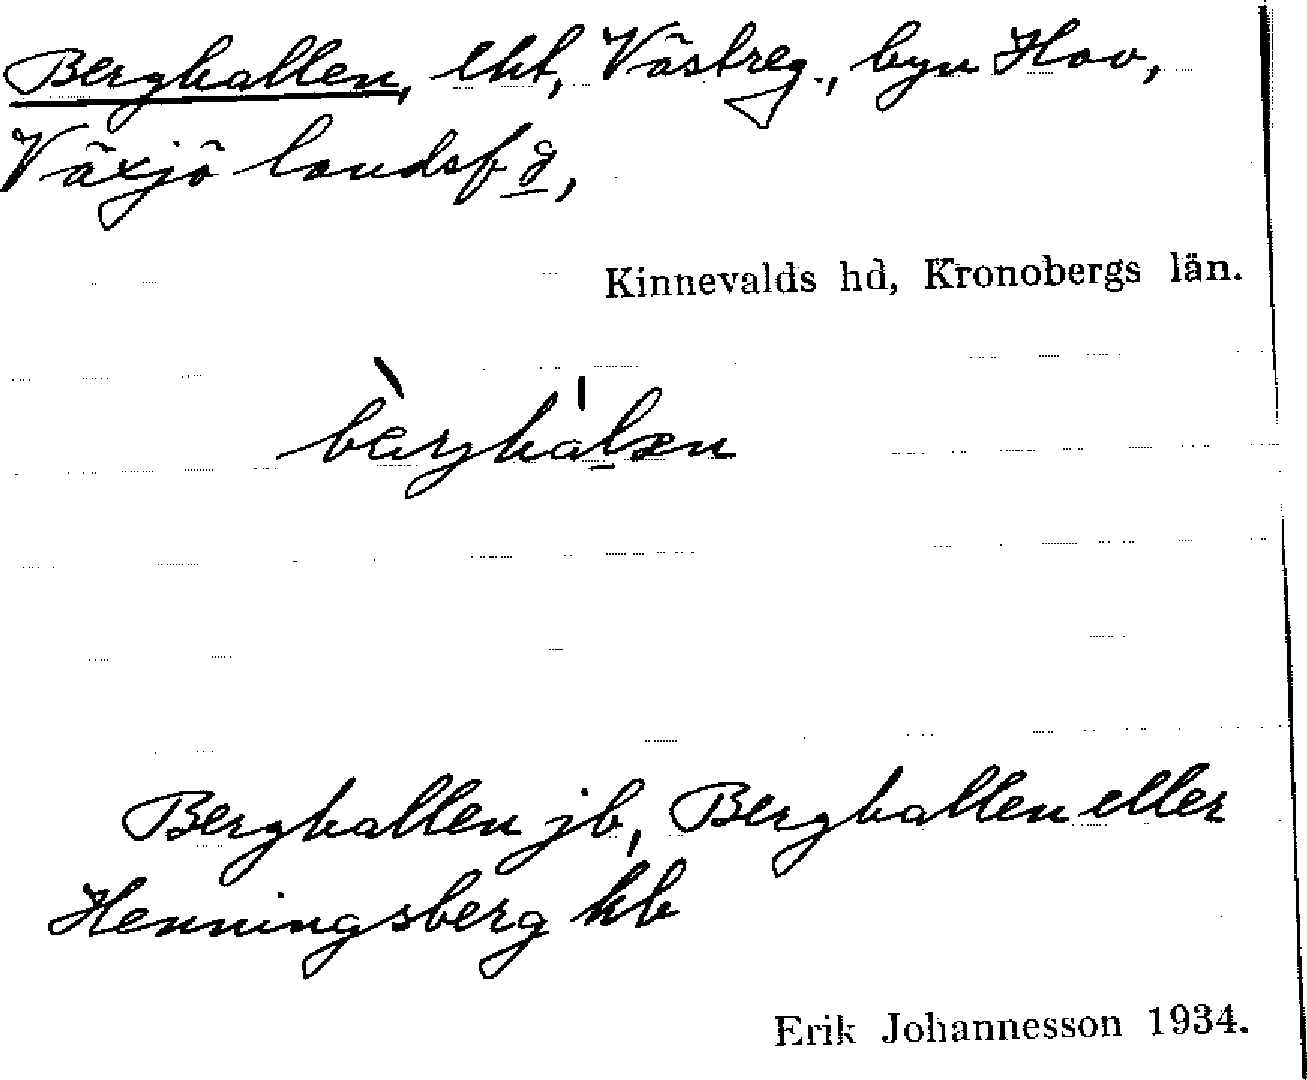 Berghallen, lht, Västreg., byn Hov,
Växjö landsf g,
Kinnevalds hd, Kronobergs län.
bærghalən
Berghallen jb, Berghallen eller
Henningsberg kb
Erik Johannesson 1934.